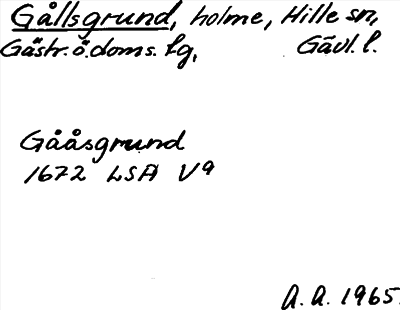 Gållsgrund, holme, Hille sn,
Gästr. ö. doms. lg, Gävl. l.
Gååsgrund
1672 LSA V9
A. A. 1965.